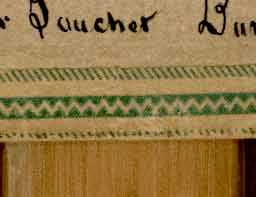 r Toucher Bur